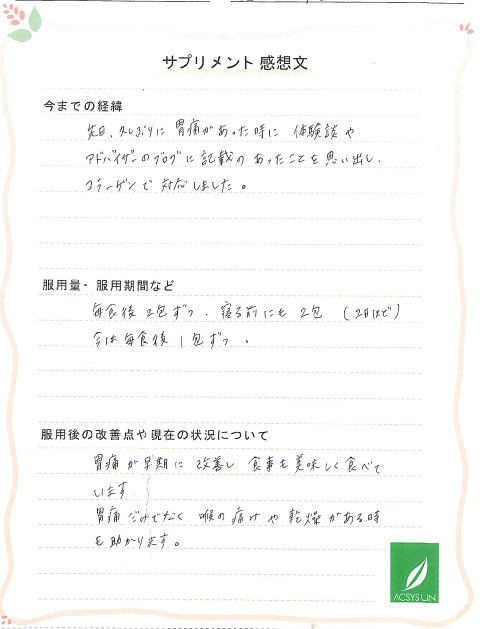 サプリメント 感想文
今までの経緯
先日、久しぶりに 胃痛があった時に 体験談や
アドバイザーのブログに記載の あったことを思い出し、
コラーゲンで 対応しました。
服用量・服用期間など
毎食後 2包ずつ、寝る前にも 2包 (2日ほど)
今は 毎食後 1包ずつ 。
服用後の改善点や現在の状況について
胃痛が早期に 改善し 食事も美味しく食べて
います
胃痛だけでなく 喉の痛みや 乾燥がある時
も助かります。
ACSYSLIN